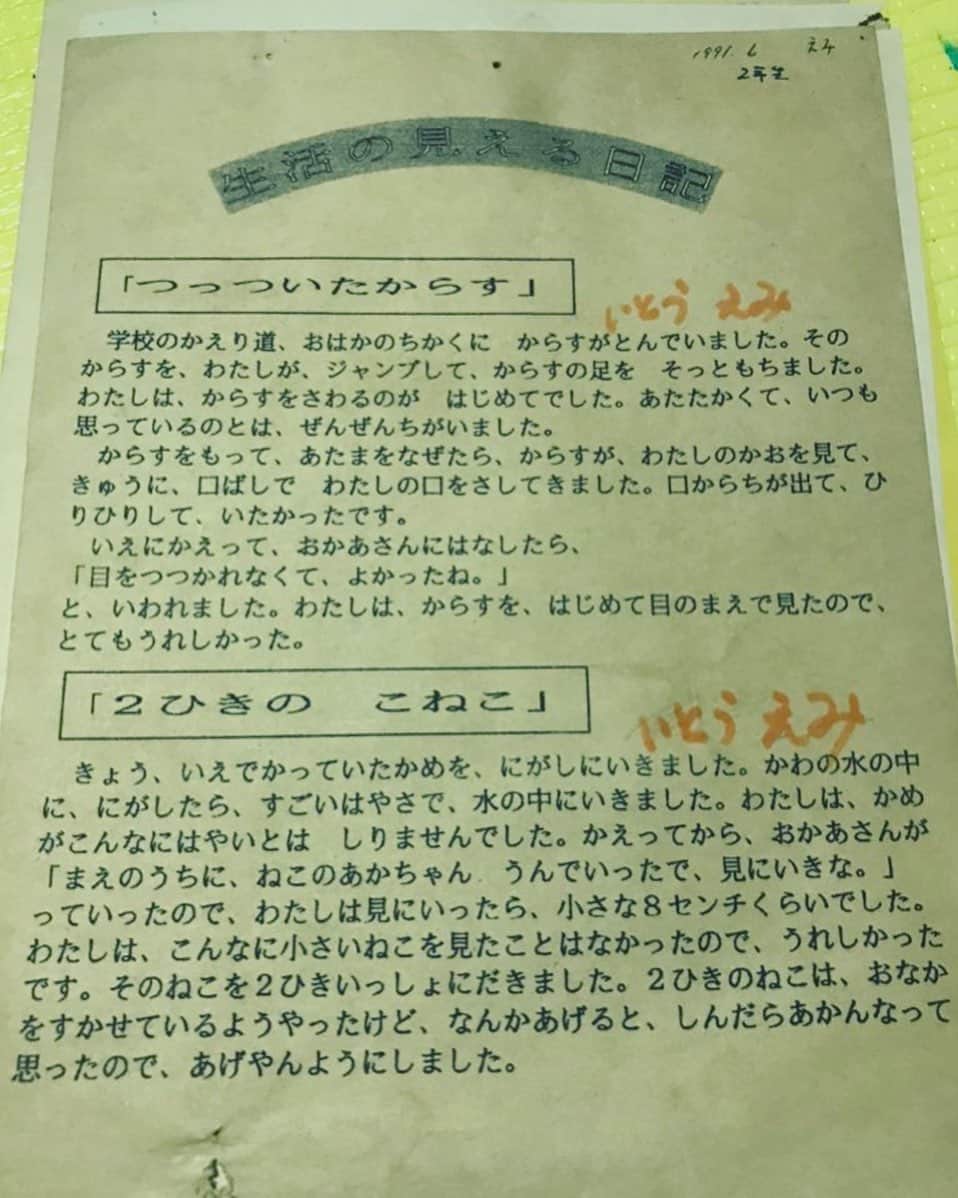 1991.6 えみ
2年生
生活の見える日記
「つっついたからす」
いとう えみ
学校のかえり道、おはかのちかくに　からすがとんでいました。その
からすを、わたしが、ジャンプして、からすの足を　そっともちました。
わたしは、からすをさわるのが　はじめてでした。あたたかくて、いつも
思っているのとは、ぜんぜんちがいました。
からすをもって、あたまをなぜたら、からすが、わたしのかおを見て、
きゅうに、口ばしで　わたしの口をさしてきました。口からちが出て、ひ
りひりして、いたかったです。
いえにかえって、おかあさんにはなしたら、
「目をつつかれなくて、よかったね。」
と、いわれました。わたしは、からすを、はじめて目のまえで見たので、
とてもうれしかった。
「2ひきの　こねこ」
いとう えみ
きょう、いえでかっていたかめを、にがしにいきました。かわの水の中
に、にがしたら、すごいはやさで、水の中にいきました。わたしは、かめ
がこんなにはやいとは　しりませんでした。かえってから、おかあさんが
「まえのうちに、ねこのあかちゃん　うんでいったで、見にいきな。」
っていったので、わたしは見にいったら、小さな8センチくらいでした。
わたしは、こんなに小さいねこを見たことはなかったので、うれしかった
です。そのねこを2ひきいっしょにだきました。2ひきのねこは、おなか
をすかせているようやったけど、なんかあげると、しんだらあかんなって
思ったので、あげやんようにしました。